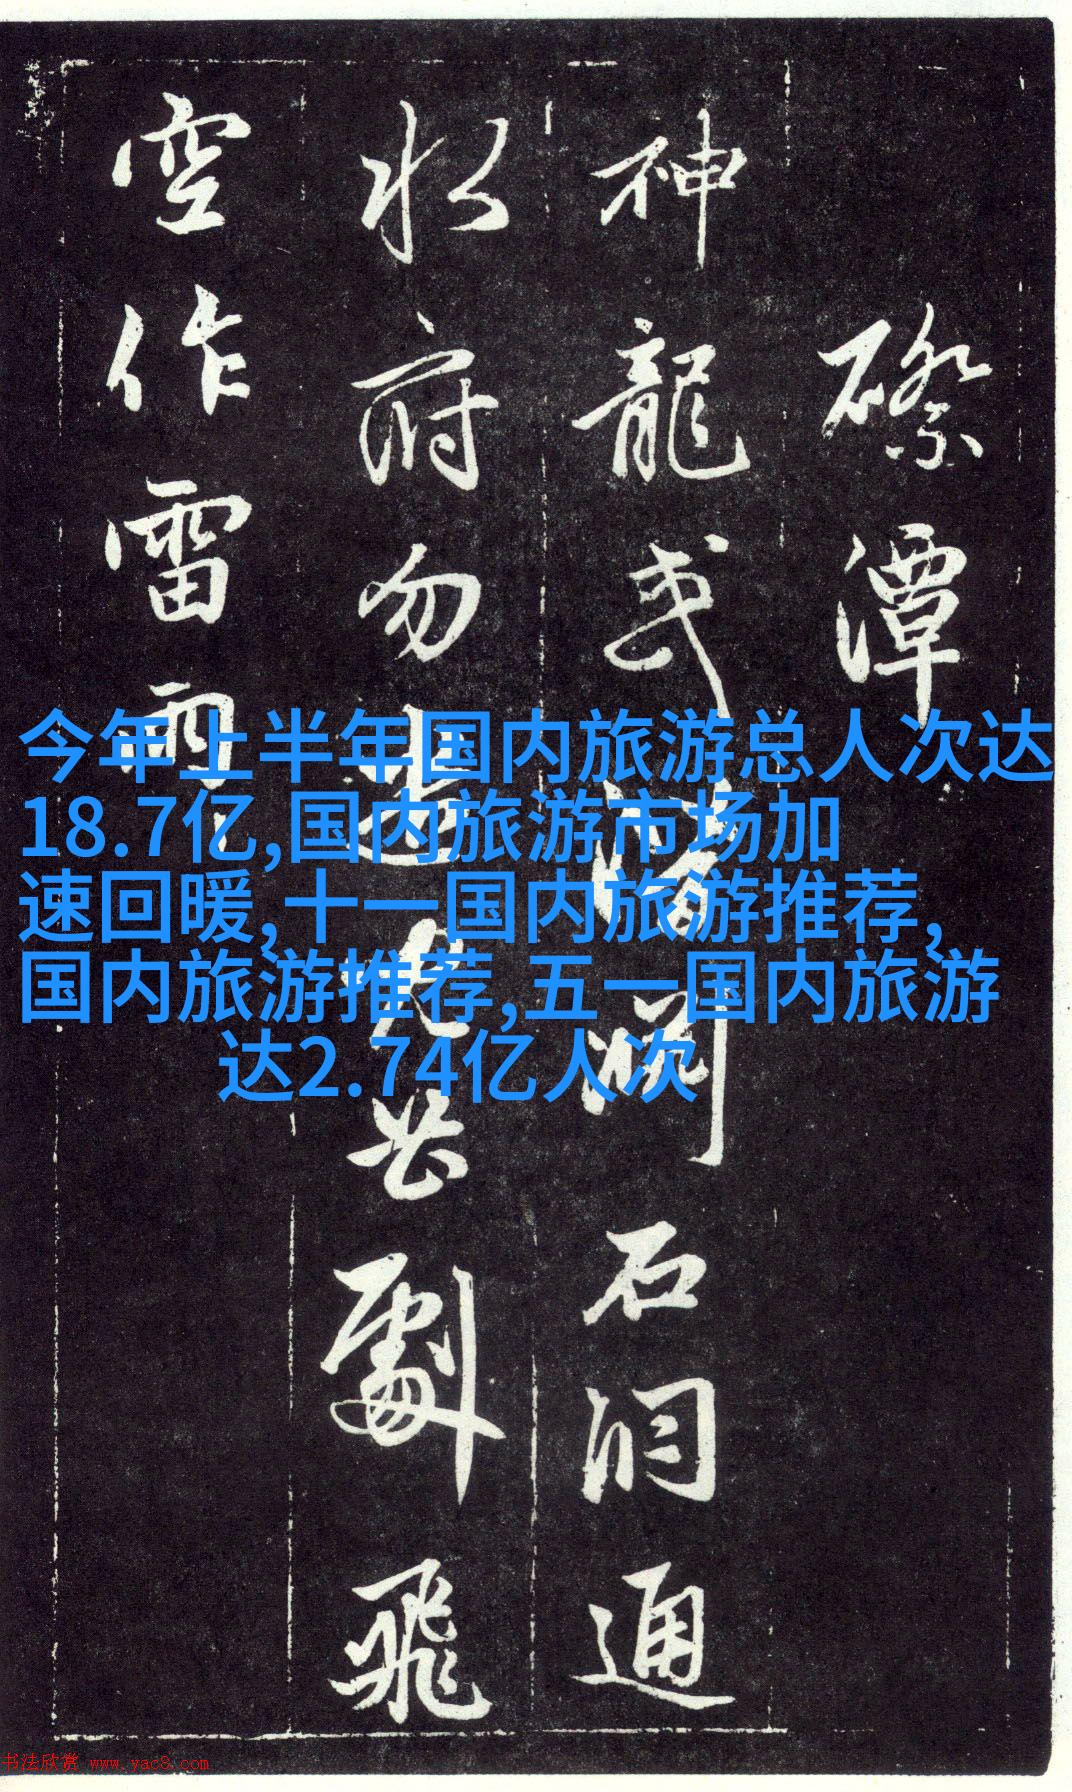 潭
神龍或潛渊石洞通
水府勿 飛
空作雷雨
今年上半年国内旅游总人次达
18.7亿,国内旅游市场加
速回暖,十一国内旅游推荐,
国内旅游推荐,五一国内旅游
达2.74亿人次
书法欣赏 www.yac8.com